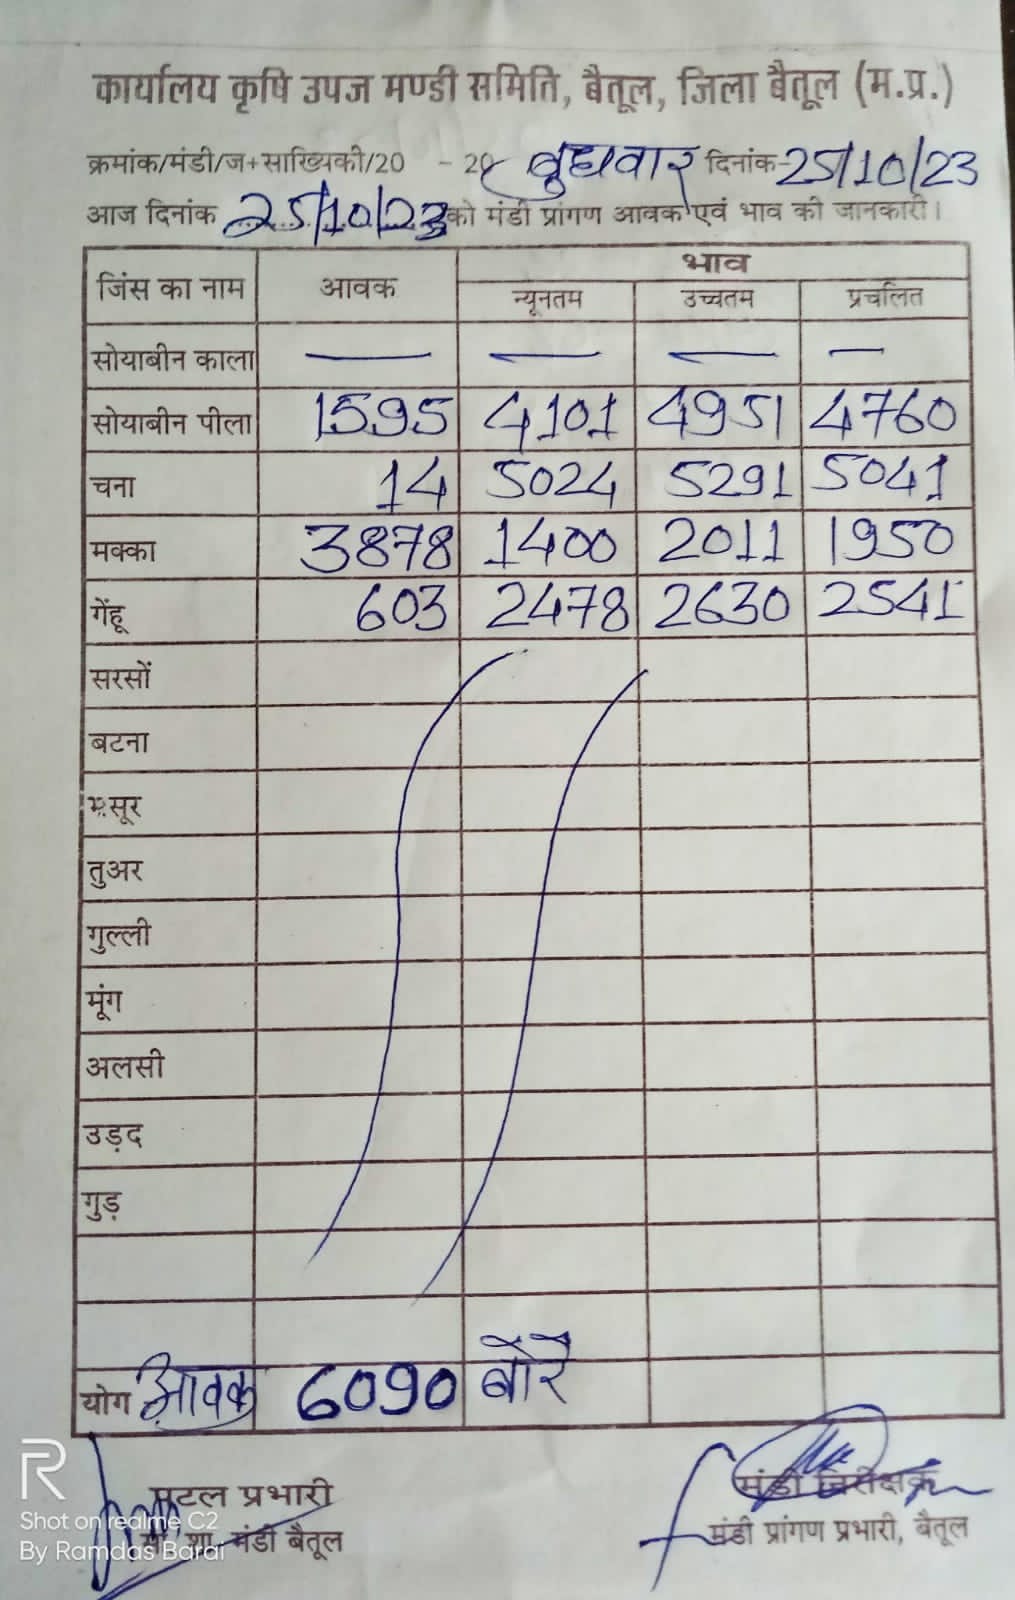 कार्यालय कृषि उपज मण्डी समिति, बैतूल, जिला बैतूल (म.प्र.)
क्रमांक/मंडी/ज+साख्यिकी/20 - 20 बुधवार दिनांक 25/10/23
आज दिनांक 25/10/23 को मंडी प्रांगण आवक एवं भाव की जानकारी।
भाव
जिंस का नाम आवक न्यूनतम उच्चतम प्रचलित
सोयाबीन काला — — — —
सोयाबीन पीला 1595 4101 4951 4760
चना 14 5024 5291 5041
मक्का 3878 1400 2011 1950
गेंहू 603 2478 2630 2541
सरसों
बटना
मसूर
तुअर
गुल्ली
मूंग
अलसी
उड़द
गुड़
योग आवक 6090 बोरे
पटल प्रभारी मंडी निरीक्षक
मंडी बैतूल मंडी प्रांगण प्रभारी, बैतूल
R
Shot on realme C2
By Ramdas Barai